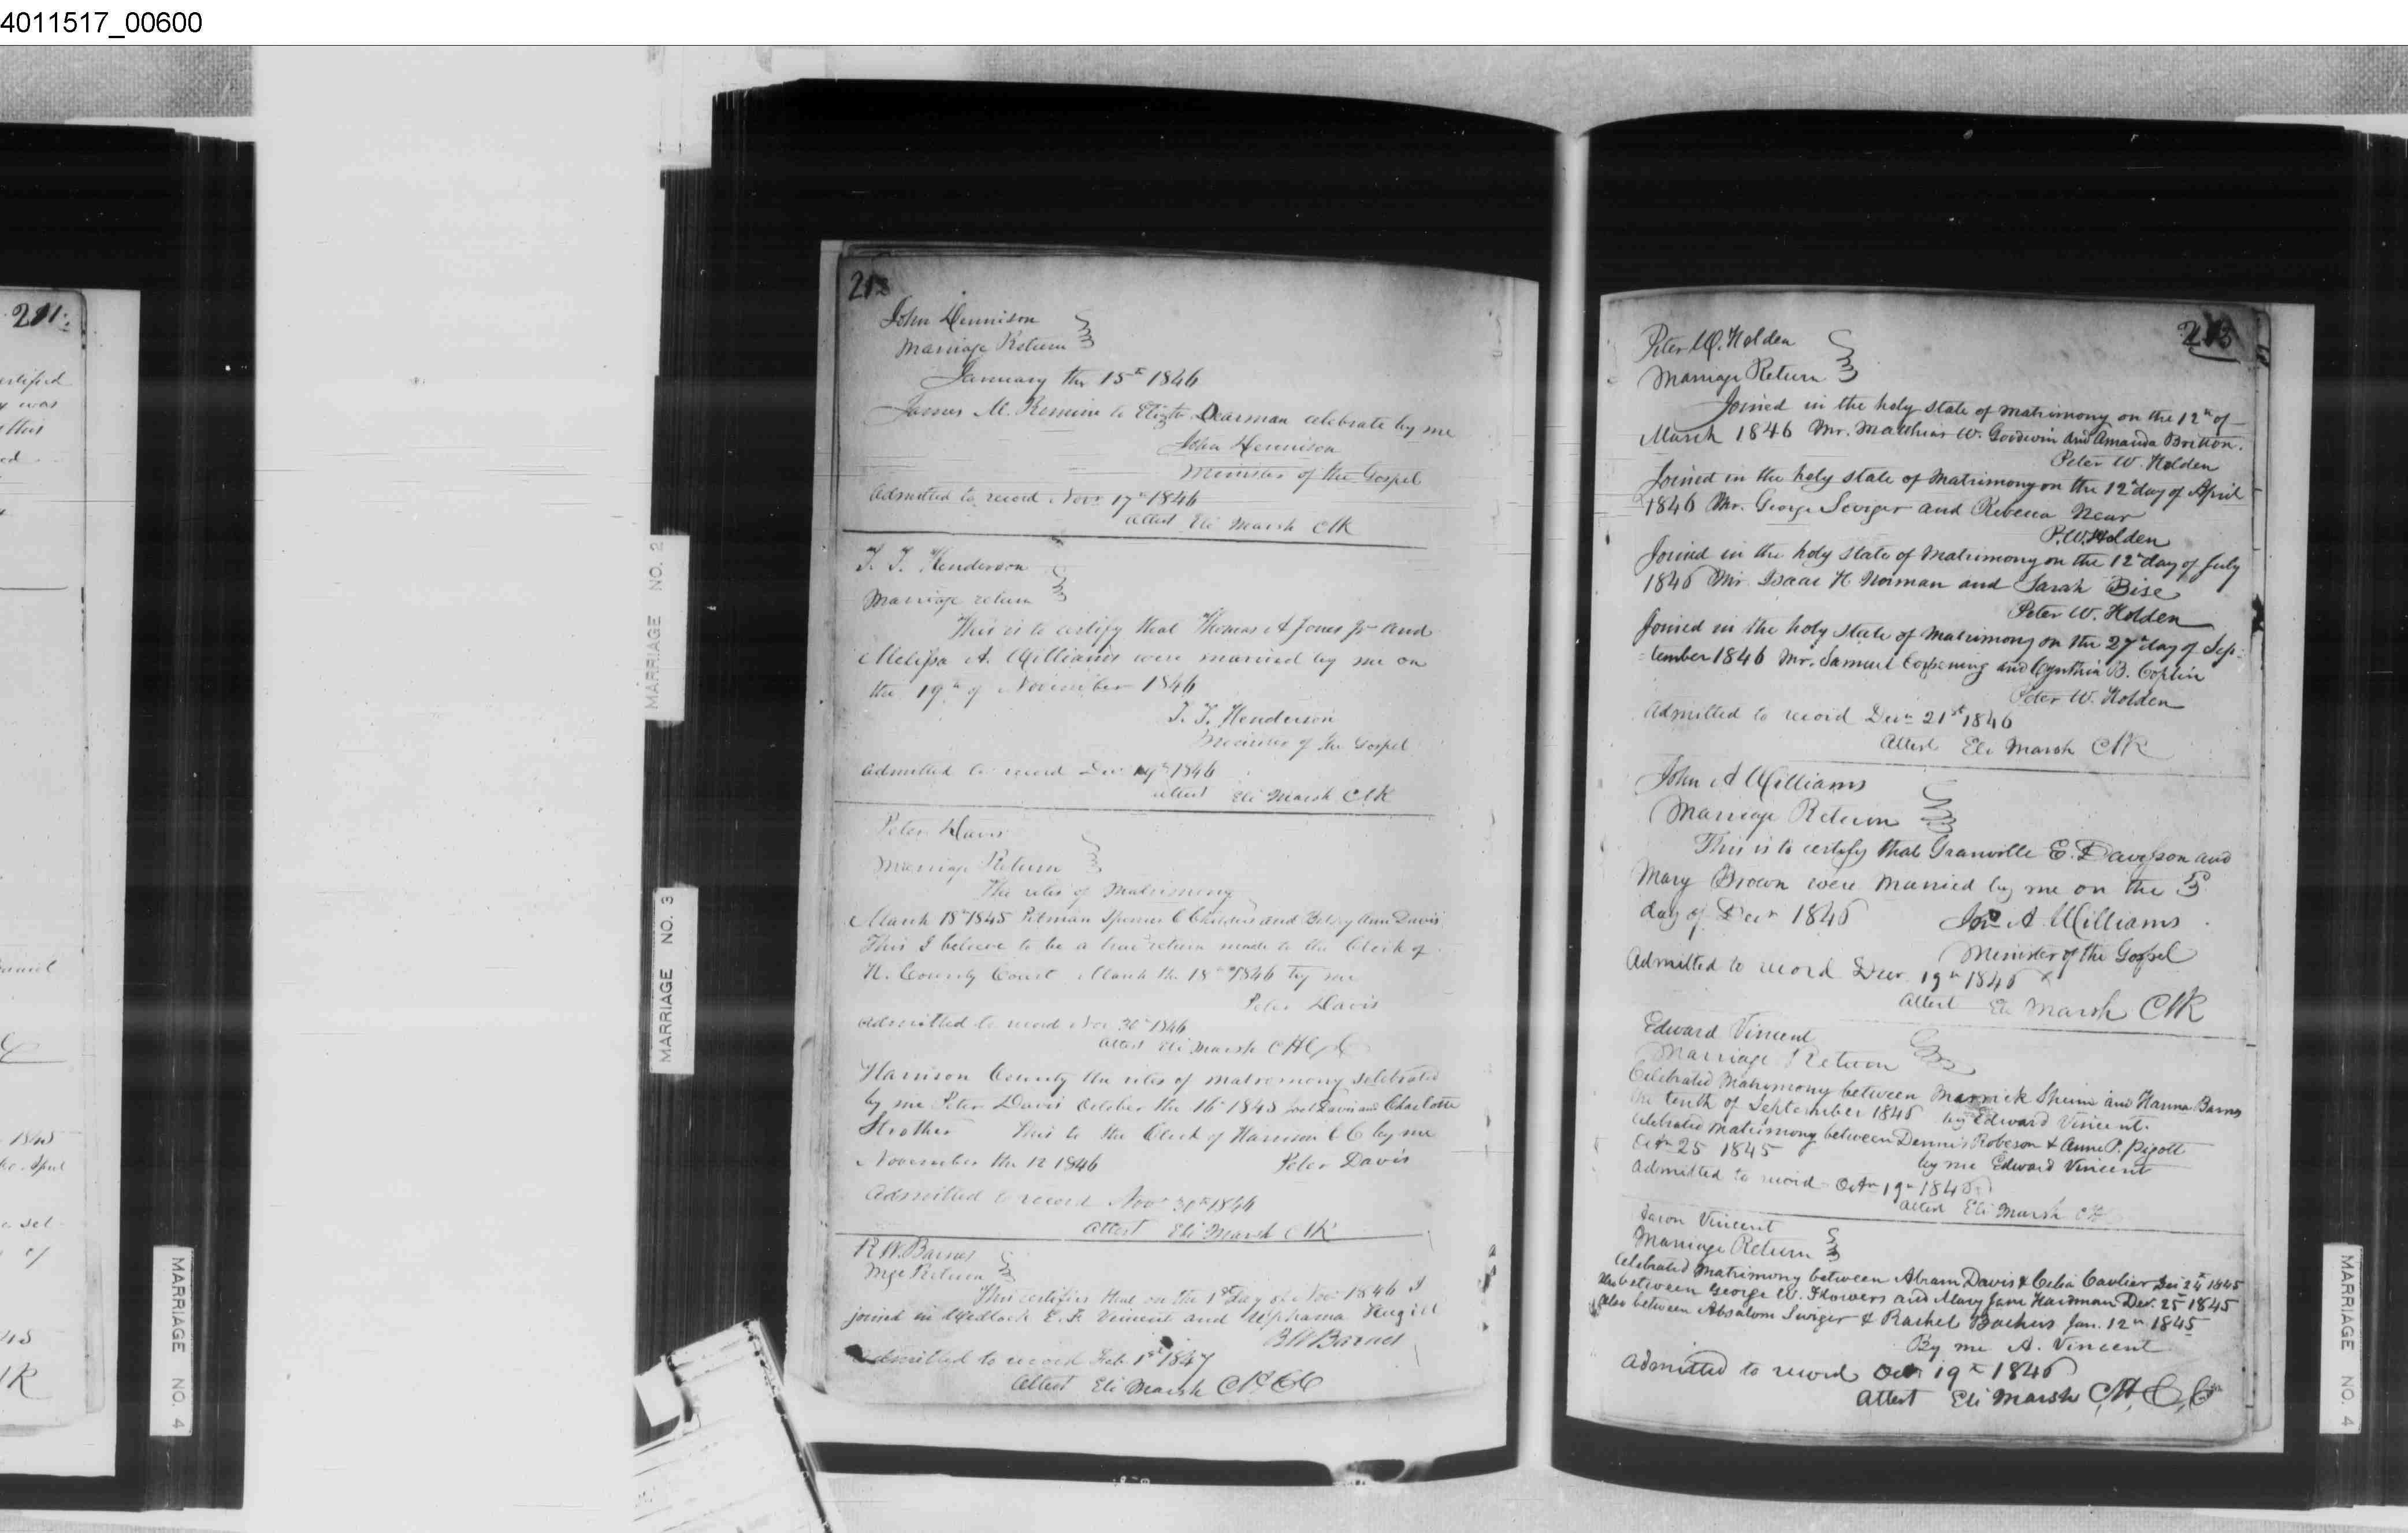 4011517_00600
211.
MARRIAGE NO. 2
MARRIAGE NO. 3
MARRIAGE NO. 4
212
John Dennison
Marriage Return
January the 15th 1846
James M. Remine to Elizth Dearman celebrate by me
John Dennison
Minister of the Gospel
Admitted to record Novr 17th 1846
Attest Eli Marsh Clk
T. T. Henderson
Marriage return
This is to certify that Thomas A Jones Jr and
Melissa A. Williams were married by me on
the 19th of November 1846
T. T. Henderson
Minister of the Gospel
Admitted to record Dec 19th 1846
Attest Eli Marsh Clk
Peter Davis
Marriage Return
The rites of matrimony
March 18th 1845 Pitman Spencer C Childers and Betsy Ann Davis
This I believe to be a true return made to the Clerk of
H. County Court March the 18th 1846 by me
Peter Davis
Admitted to record Nov 30th 1846
Attest Eli Marsh C H C C
Harrison County the rites of matromony selebrated
by me Peter Davis October the 16th 1845 Joel Davis and Charlotte
Strother This to the Clerk of Harrison C C by me
November the 12 1846 Peter Davis
Admitted to record Nov 30th 1846
Attest Eli Marsh Clk
R W. Barnes
Mge Return
This certifies that on the 1st day of Nov 1846 I
joined in Wedlock E. F. Vincent and
Barnes
Admitted to record Feb. 1st 1847
Attest Eli Marsh
213
Peter W. Holden
Marriage Return
Joined in the holy state of matrimony on the 12th of
March 1846 Mr. Matthias W. Goodwin and Amanda Britton.
Peter W. Holden
Joined in the holy state of matrimony on the 12th day of April
1846 Mr. George Swiger and Rebecca Near
P. W. Holden
Joined in the holy state of matrimony on the 12th day of July
1846 Mr. Isaac H. Norman and Sarah Bise
Peter W. Holden
Joined in the holy state of matrimony on the 27th day of Sep-
tember 1846 Mr. Samuel Corpening and Cynthia B. Coplin
Peter W. Holden
Admitted to record Decr 21st 1846
Attest Eli Marsh Clk
John A Williams
Marriage Return
This is to certify that Granville E. Davisson and
Mary Brown were married by me on the 3
day of Decr 1846 Jno A Williams
Minister of the Gospel
Admitted to record Decr 19th 1846
Attest Eli Marsh Clk
Edward Vincent
Marriage Return
Celebrated Matrimony between Marrick Shinn and Hanna Barns
the tenth of September 1846 by Edward Vincent.
Celebrated matrimony between Dennis Robeson & Anne P. Pigott
Octr 25 1845
by me Edward Vincent
Admitted to record Octr 19th 1846
Attest Eli Marsh
Aaron Vincent
Marriage Return
Celebrated matrimony between Abram Davis & Celia Cavlier 24th 1845
Also between George W. Flowers and Mary Jane Hardman Dec. 25th 1845
Also between Absalom Swiger & Rachel Backus Jan. 12th 1845
By me A. Vincent
Admitted to record Oct 19th 1846
Attest Eli Marsh C, H, C, C
MARRIAGE NO. 4